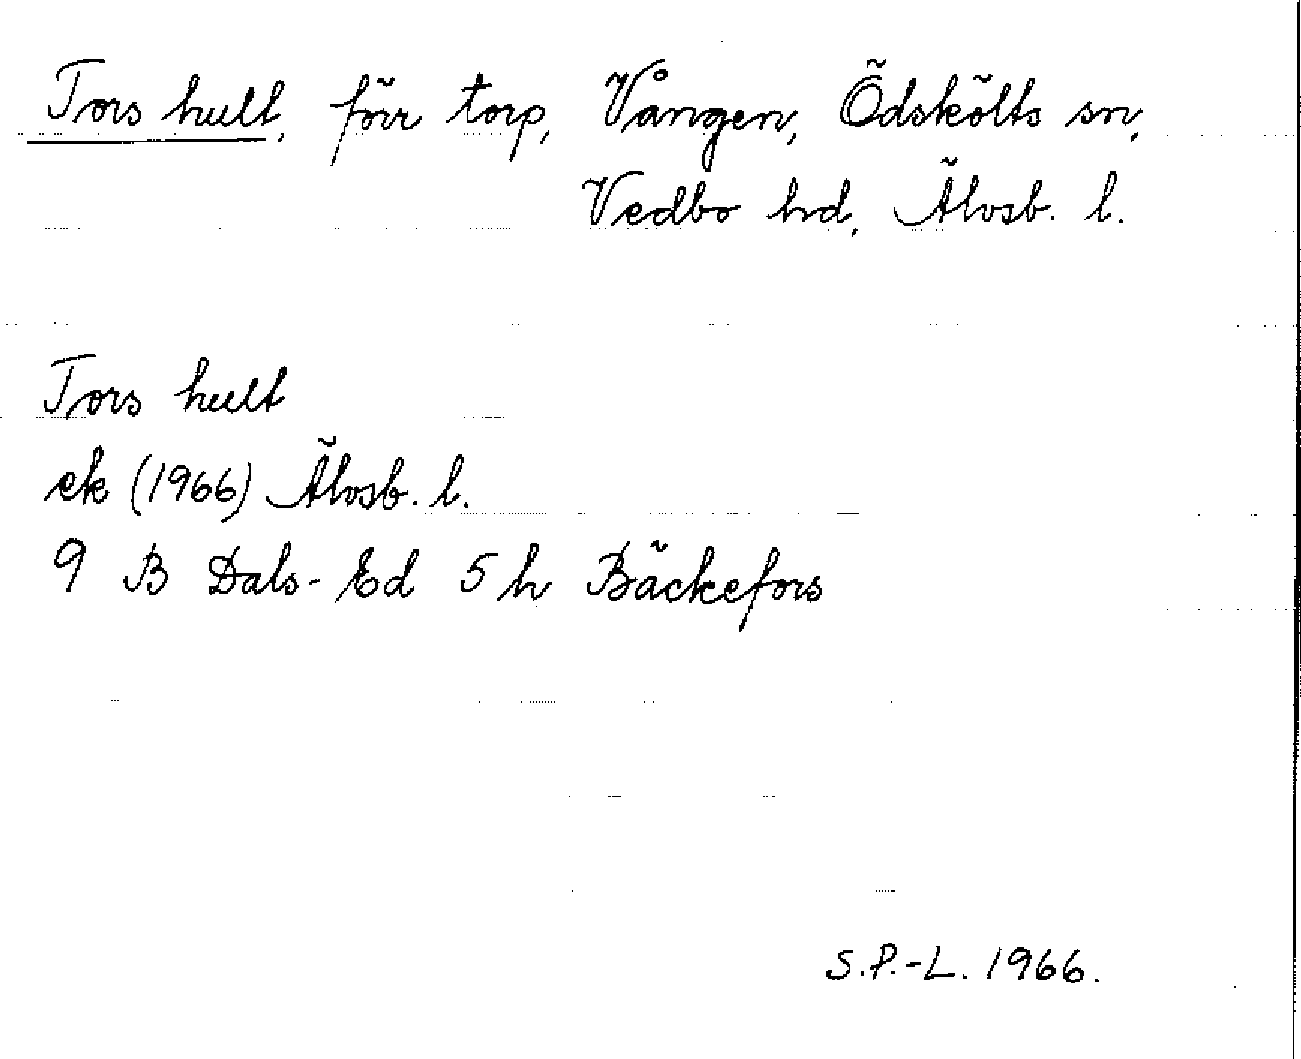 Tors hult, förr torp, Vången, Ödskölts sn,
Vedbo hd, Älvsb. l.
Tors hult
ek (1966) Älvsb. l.
9 B Dals-Ed 5 h Bäckefors
S.P.-L. 1966.